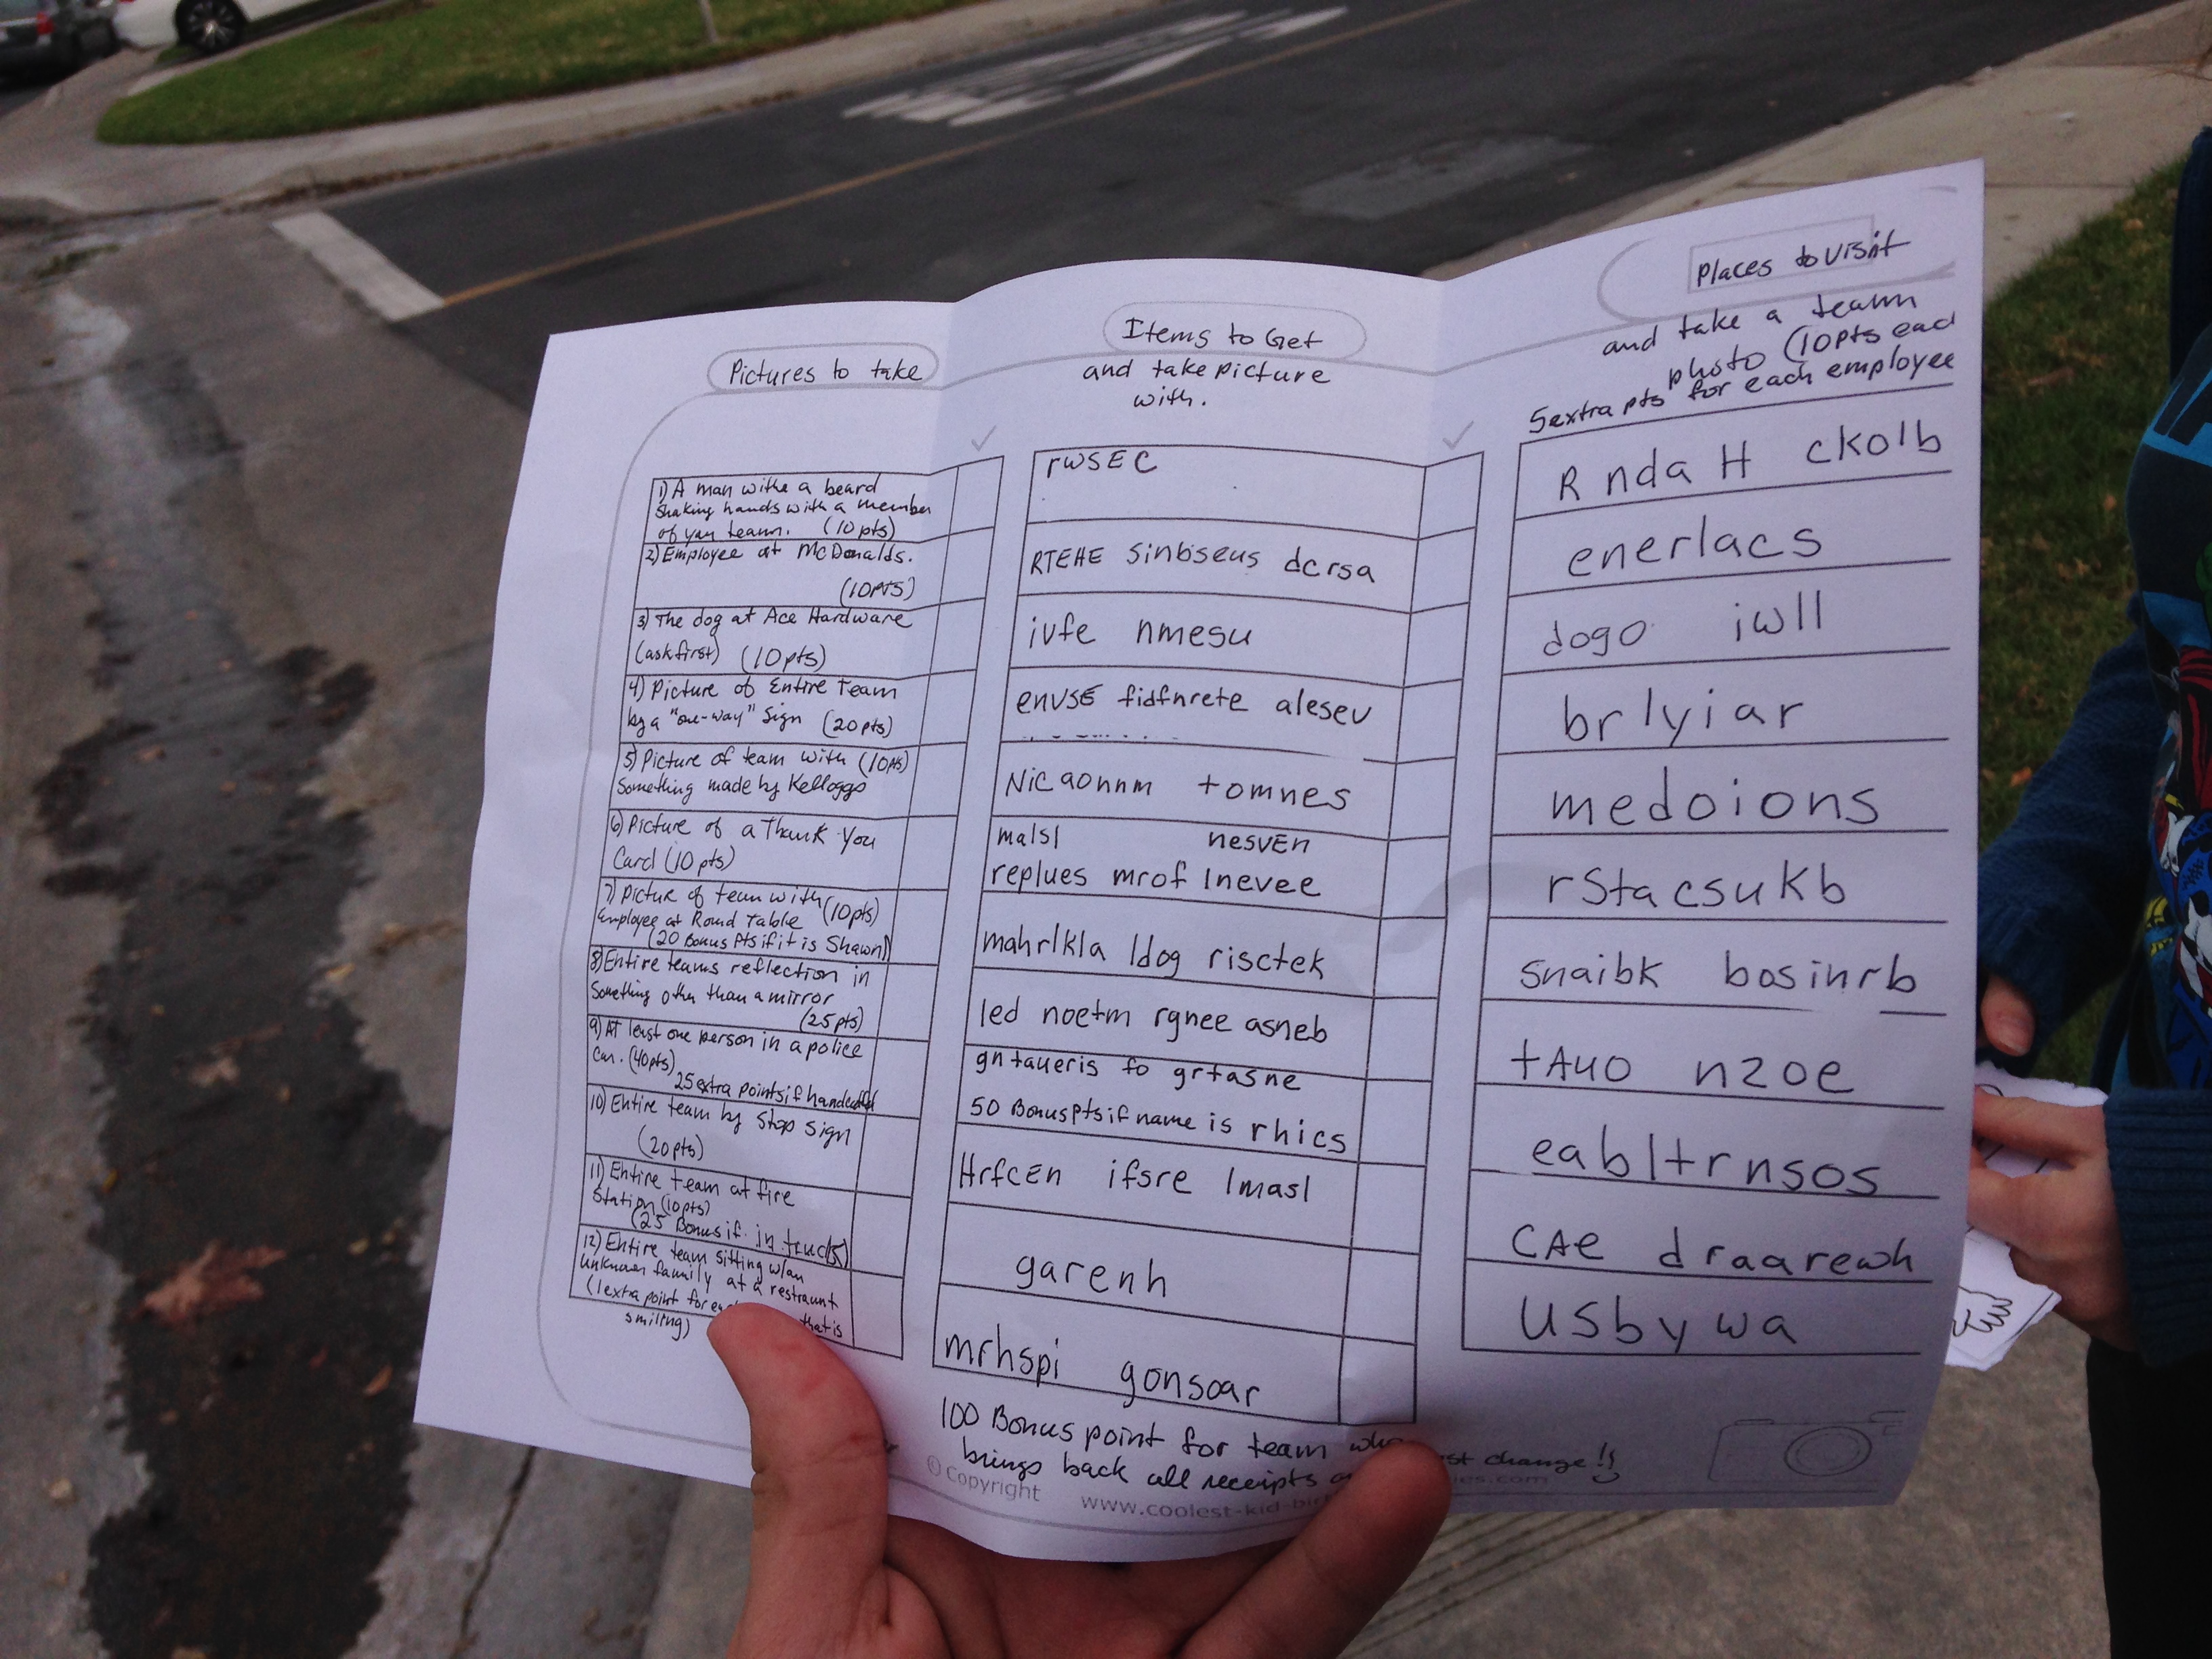 Pictures to take
1) A man withe a beard
Shaking hands with a member
of your team. (10 pts)
2) Employee at McDonalds.
(10 PTS)
3) The dog at Ace Hardware
(ask first) (10 pts)
4) Picture of Entire Team
by a "one-way" Sign (20 pts)
5) Picture of team with (10 pts)
Something made by Kelloggs
6) Picture of a Thank You
Card (10 pts)
7) Picture of team with (10 pts)
Employee at Round Table
(20 Bonus Pts if it is Shawn)
8) Entire teams reflection in
Something other than a mirror
(25 pts)
9) At least one person in a police
Car. (40 pts)
25 extra points if handcuffed
10) Entire team by Stop sign
(20 pts)
11) Entire team at fire
Station (10 pts)
(25 Bonus if in truck)
12) Entire team sitting w/an
unknown family at a restraunt
(1 extra point for that is
smiling)
Items to Get
and take picture
with.
rwSEC
RTEHE sinbseus dcrsa
ivfe nmesu
envSE fidfnrete alesev
Nicaonnm tomnes
malsl nesvEn
replues mrof lnevee
mahrlkla ldog risctek
led noetm rgnee asneb
gntaueris fo grtasne
50 Bonus Pts if name is rhics
HrfcEn ifsre lmasl
garenh
mrhspi gonsoar
100 Bonus point for team who
brings back all receipts
change!!
© Copyright www.coolest-kid-bir
ies.com
Places to Visit
and take a team
photo (10 pts each
5 extra pts for each employee
R nda H ckolb
enerlacs
dogo iwll
brlyiar
medoions
rStacsukb
snaibk bosinrb
tAuo nzoe
eabltrnsos
CAe draarewh
usbywa